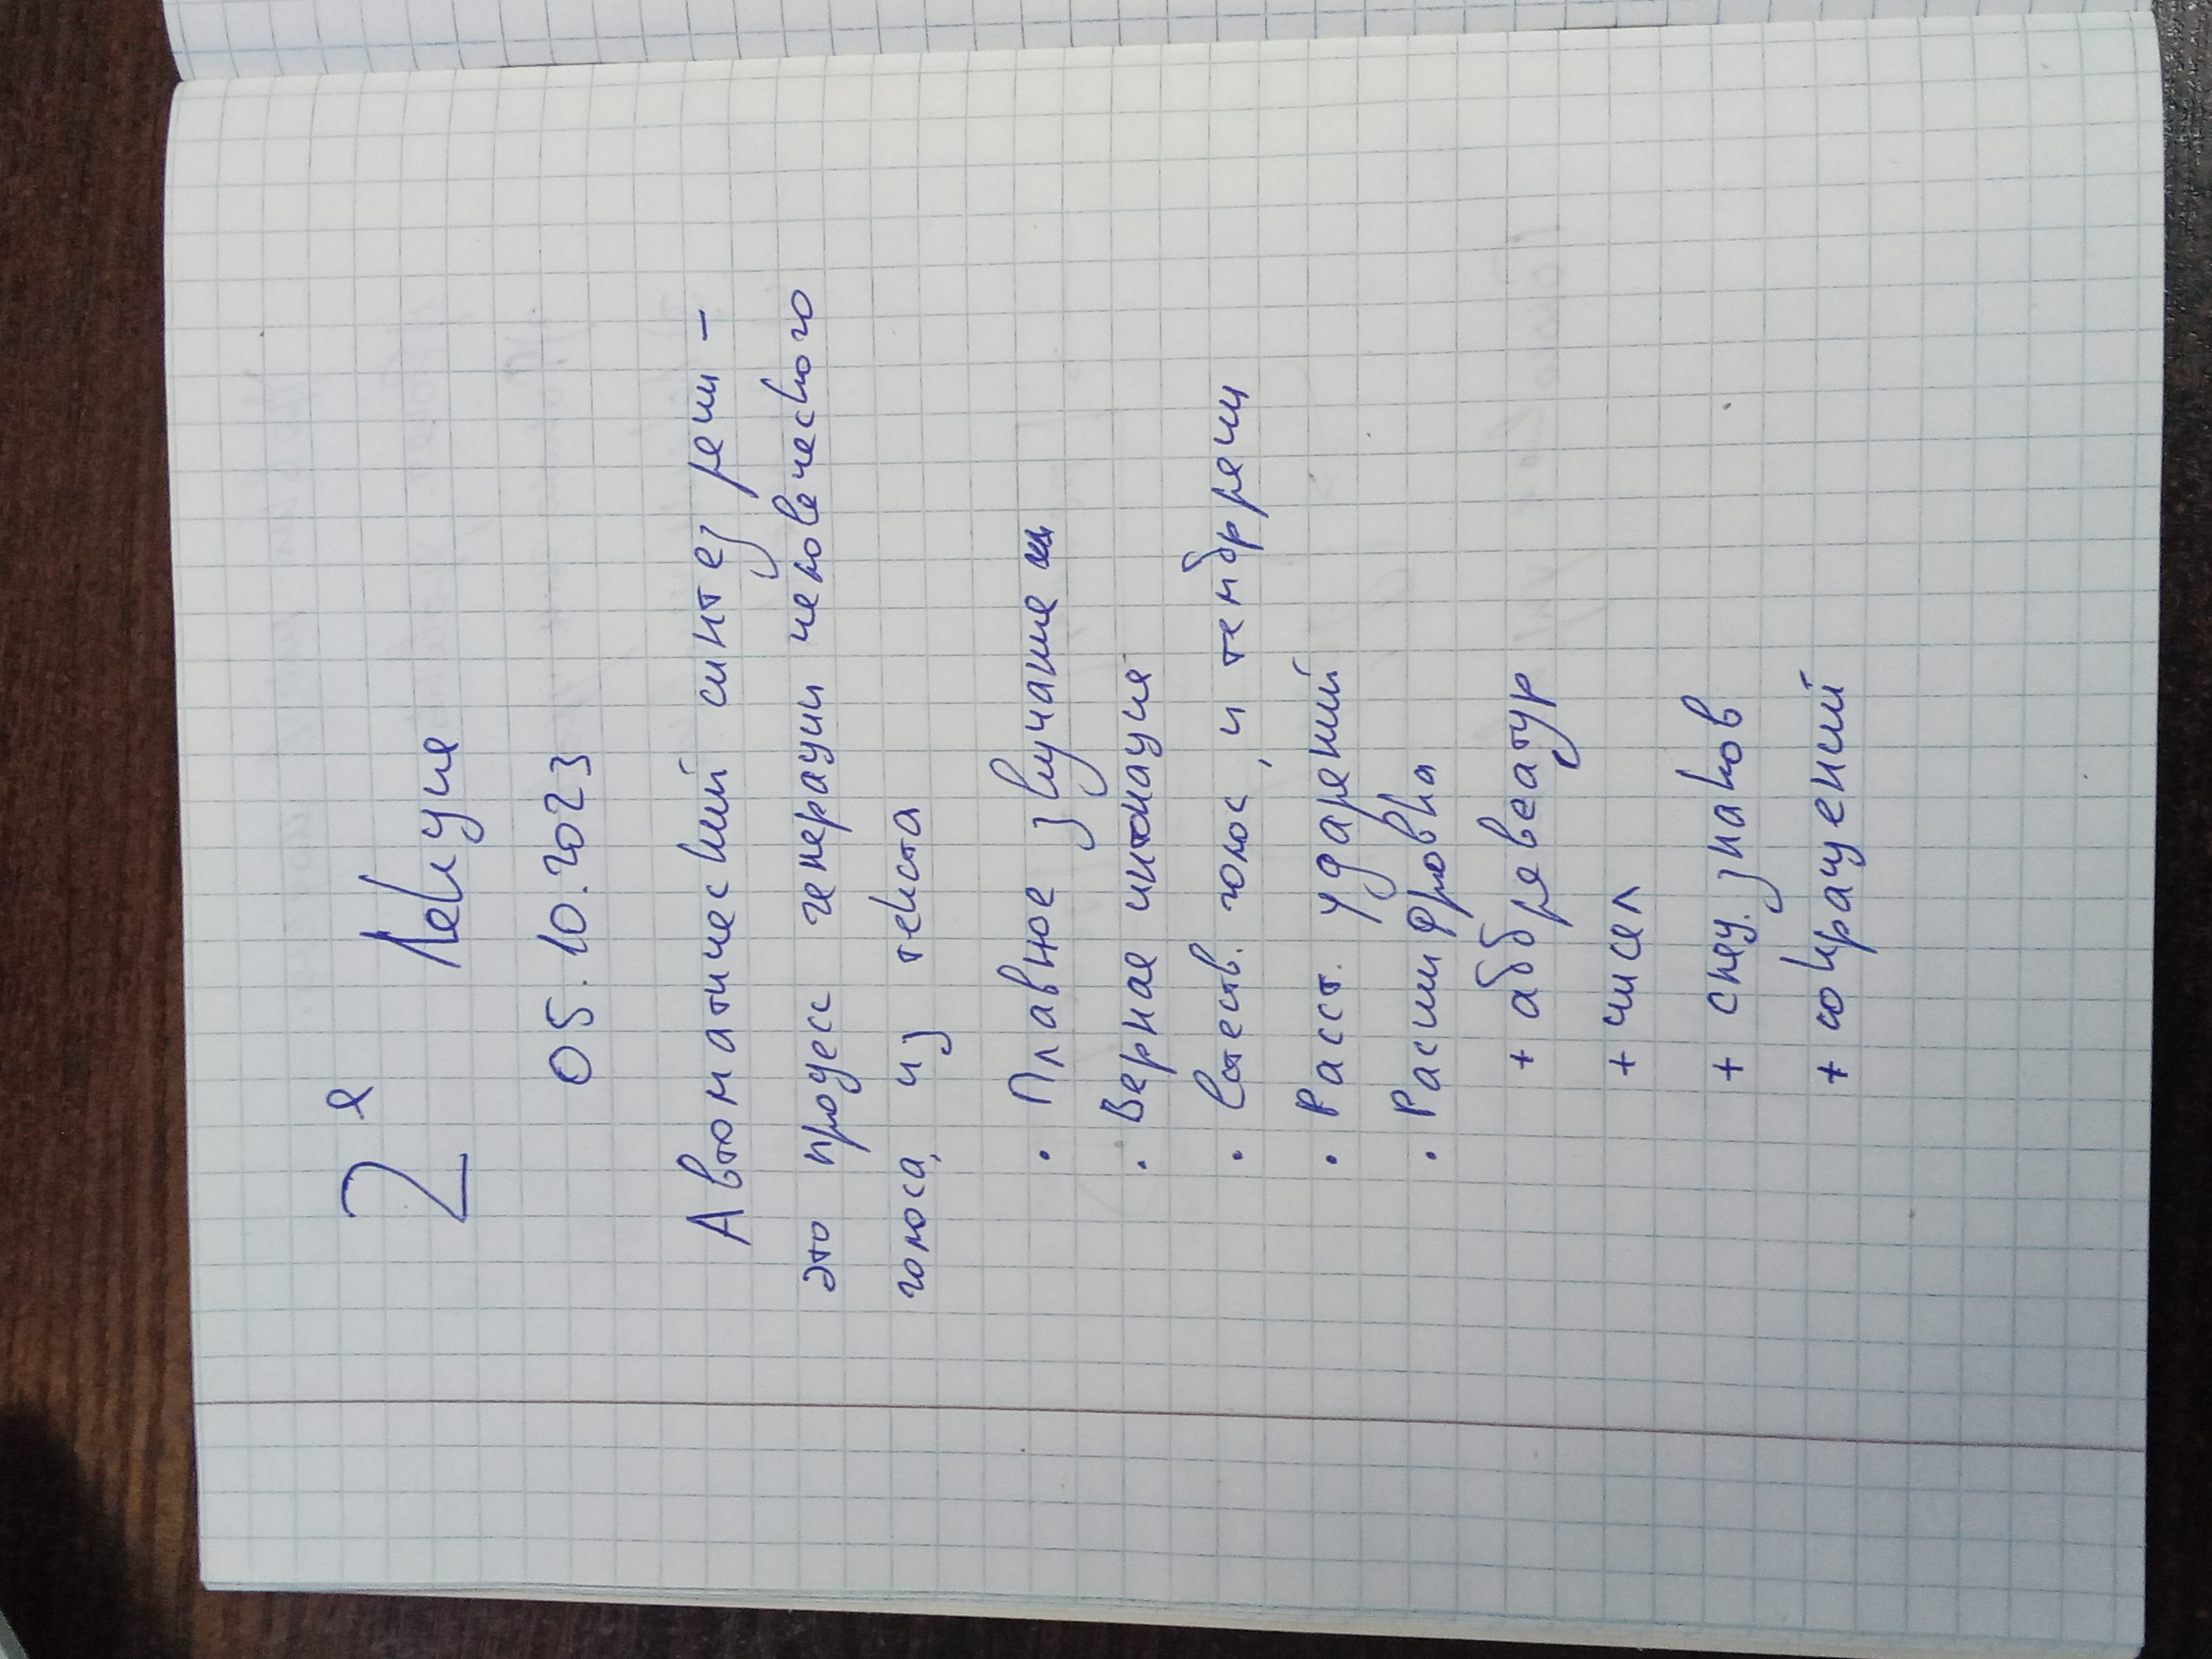 2я Лекция
05.10.2023
Автоматический синтез речи –
это процесс генерации человеческого
голоса, из текста
· Плавное звучание
· Верная интонация
· Естеств. голос, и тембр речи
· Расст. ударений
· Расшифровка
+ аббревеатур
+ чисел
+ спец. знаков
+ сокращений